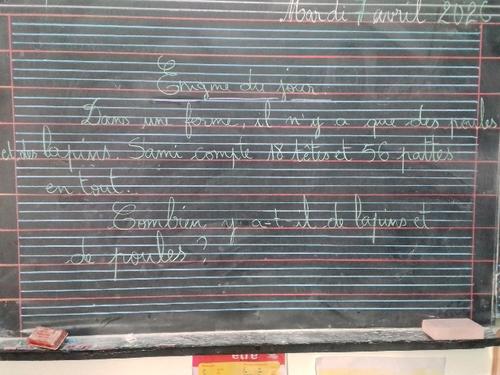 Mardi 7 avril 2026
Enigme du jour.
Dans une ferme, il n'y a que des poules
et des lapins. Sami compte 18 têtes et 56 pattes
en tout...
Combien y a-t-il de lapins et
de poules ?
être